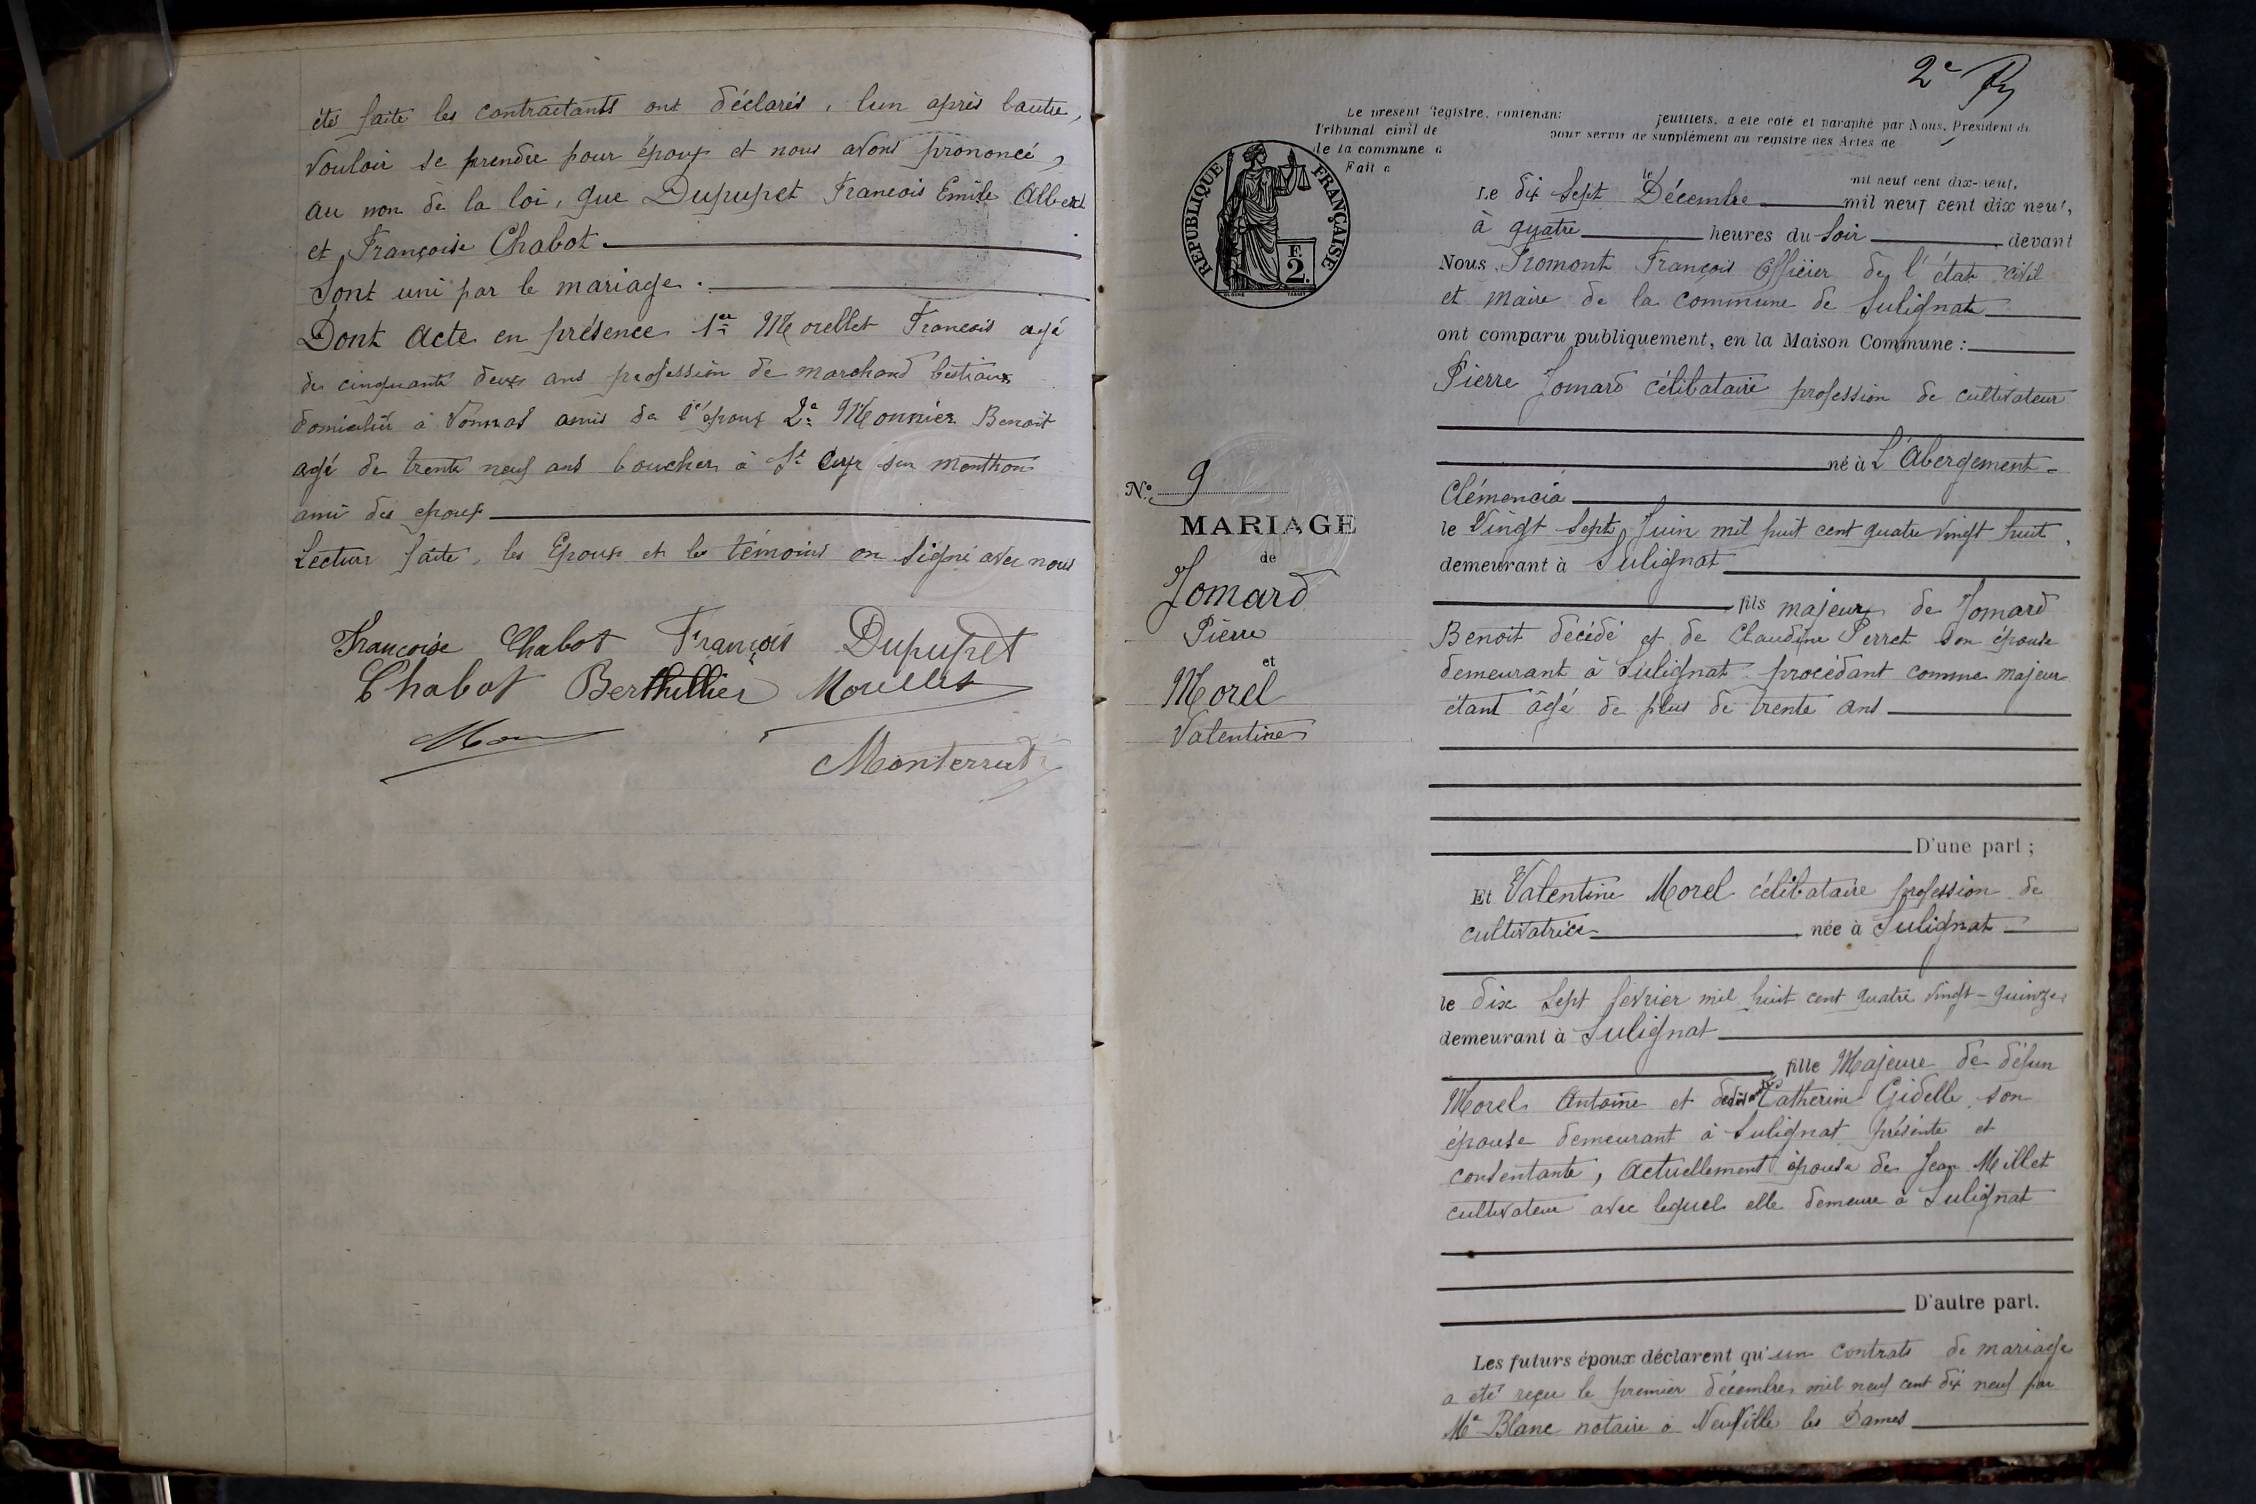 été faite les contractants ont déclarés, lun après lautre,
vouloir se prendre pour époux et nous avons prononcé,
au nom de la loi, que Dupupet Francois Emile Albert
et Françoise Chabot.
Sont uni par le mariage.
Dont acte en présence 1er Morellet Francois agé
de cinquante deux ans profession de marchand bestiaux
domicilié à Vonnas amis de l'époux 2e Monnier Benoit
agé de trente neuf ans boucher à St Cyr sur Menthon
ami des epoux
Lecture faite, les Epoux et les témoins on signé avec nous
Françoise Chabot François Dupupet
Chabot Berthillier Morellet
Monterrat
2e
Le present Registre, contenan: feuillets, a ete coté et paraphé par Nous, President du
Tribunal civil de pour servir de supplément au registre des Actes de
de la commune d
Fait à mil neuf cent dix-neuf.
REPUBLIQUE FRANÇAISE
F.
2.
Le dix sept Décembre mil neuf cent dix neuf,
à quatre heures du Soir devant
Nous Promont François Officier de l'état civil
et maire de la commune de Sulignat
ont comparu publiquement, en la Maison Commune :
Pierre Jomard célibataire profession de cultivateur
né à L'Abergement-
Clémencia
le Vingt Sept Juin mil huit cent quatre vingt huit,
demeurant à Sulignat
fils majeur de Jomard
Benoit décédé et de Claudine Perret son épouse
demeurant à Sulignat procédant comme majeur
étant âgé de plus de trente ans
D'une part ;
N° 9
MARIAGE
de
Jomard
Pierre
et
Morel
Valentine
Et Valentine Morel célibataire profession de
cultivatrice née à Sulignat
le dix sept février mil huit cent quatre vingt-quinze
demeurant à Sulignat
fille Majeure de défun
Morel Antoine et Catherine Gidelle son
épouse demeurant à Sulignat présente et
consentante, actuellement épouse de Jean Millet
cultivateur avec lequel elle demeure à Sulignat
D'autre part.
Les futurs époux déclarent qu'un contrats de mariage
a eté reçu le premier décembre mil neuf cent dix neuf par
Me Blanc notaire à Neuville les Dames